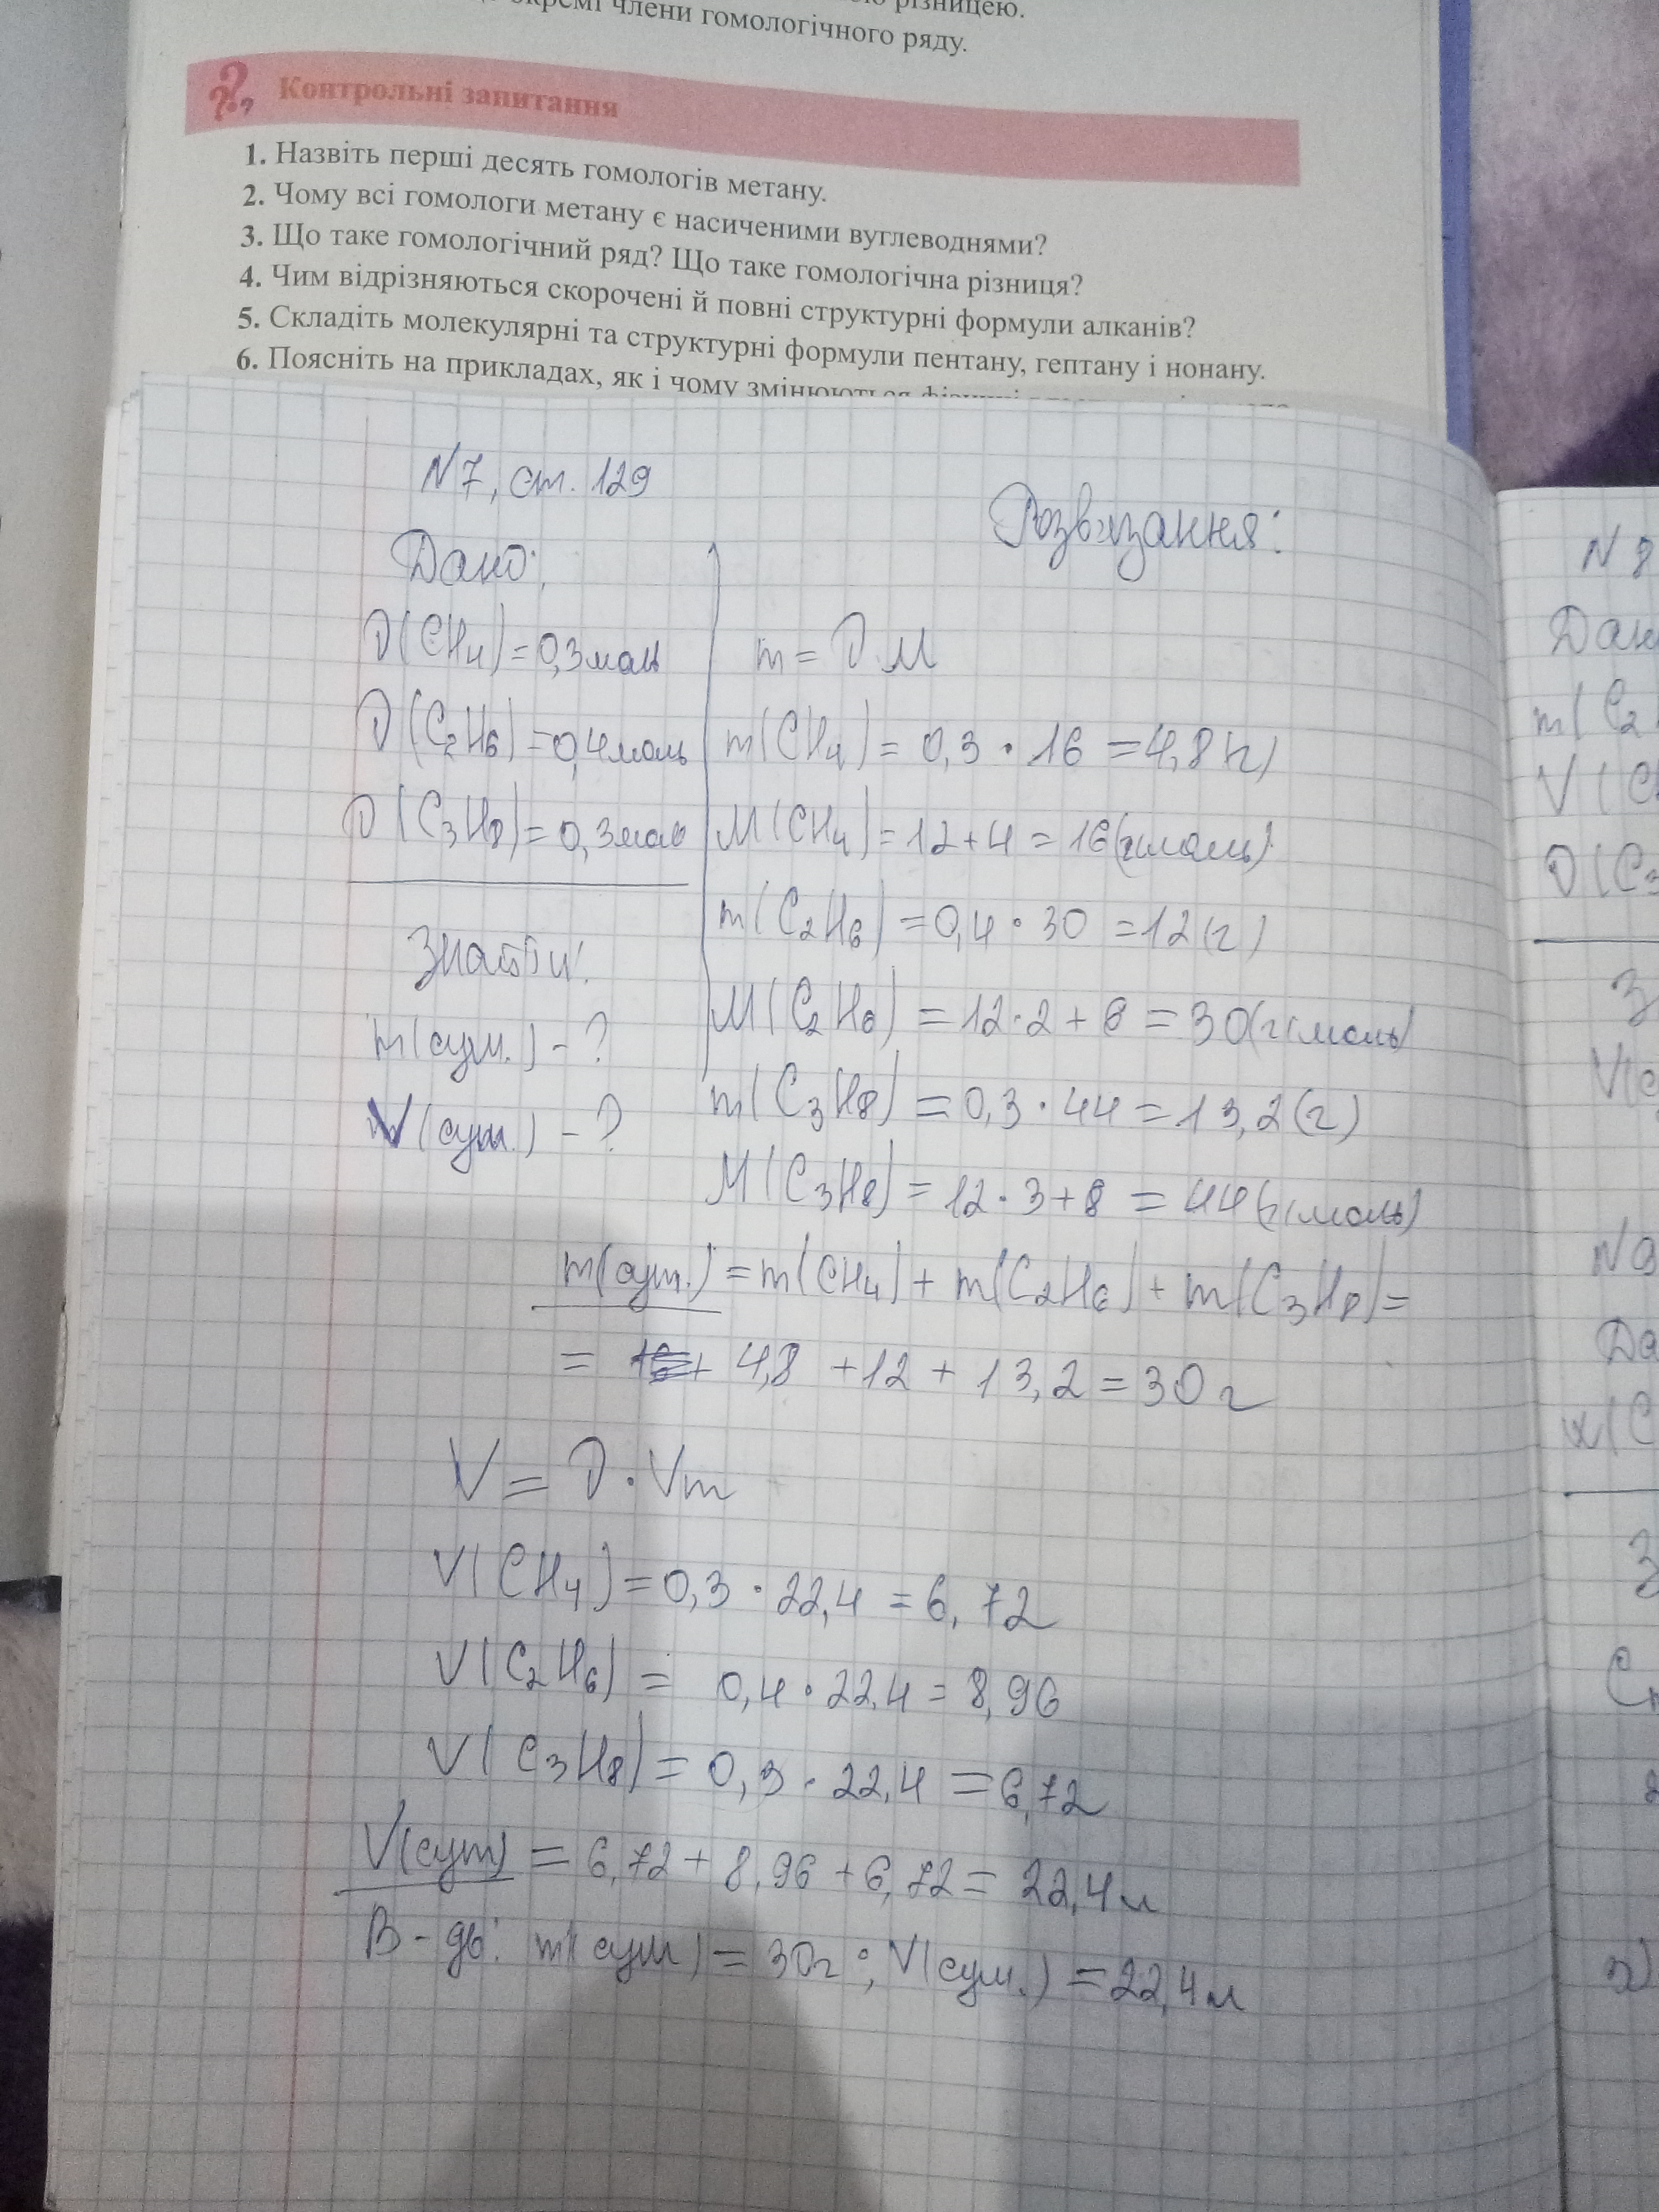 різницею.
окремі члени гомологічного ряду.
Контрольні запитання
1. Назвіть перші десять гомологів метану.
2. Чому всі гомологи метану є насиченими вуглеводнями?
3. Що таке гомологічний ряд? Що таке гомологічна різниця?
4. Чим відрізняються скорочені й повні структурні формули алканів?
5. Складіть молекулярні та структурні формули пентану, гептану і нонану.
6. Поясніть на прикладах, як і чому змінюються фізичні
N7, ст. 129
Розв'язання:
Дано:
ν(CH4) = 0,3 моль
ν(C2H6) = 0,4 моль
ν(C3H8) = 0,3 моль
Знайти:
m(сум.) - ?
V(сум.) - ?
m = ν M
m(CH4) = 0,3 · 16 = 4,8 (г)
M(CH4) = 12 + 4 = 16 (г/моль)
m(C2H6) = 0,4 · 30 = 12 (г)
M(C2H6) = 12 · 2 + 6 = 30 (г/моль)
m(C3H8) = 0,3 · 44 = 13,2 (г)
M(C3H8) = 12 · 3 + 8 = 44 (г/моль)
m(сум.) = m(CH4) + m(C2H6) + m(C3H8) =
= 4,8 + 12 + 13,2 = 30 г
V = ν · Vm
V(CH4) = 0,3 · 22,4 = 6,72
V(C2H6) = 0,4 · 22,4 = 8,96
V(C3H8) = 0,3 · 22,4 = 6,72
V(сум) = 6,72 + 8,96 + 6,72 = 22,4 л
В-дь: m(сум) = 30 г; V(сум.) = 22,4 л
N 8
Дан
m(C2
V(C
ν(C3
З
V(с
N9
Да